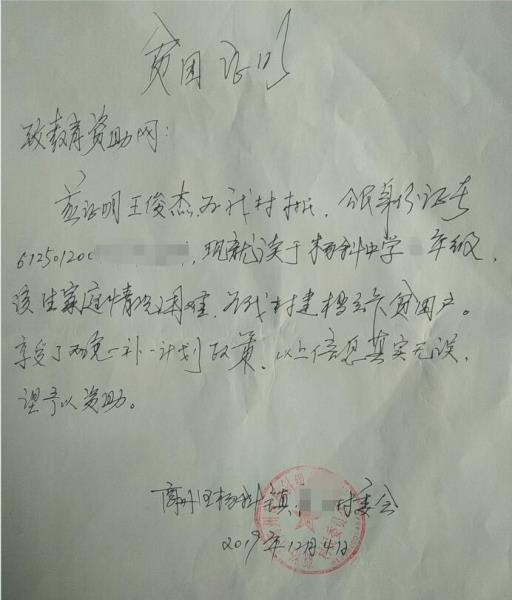 贫困证明
致教育资助网：
兹证明王俊杰为我村村民，公民身份证号
61250120，现就读于杨斜中学 年级，
该生家庭情况困难，为我村建档立卡贫困户。
享受了两免一补一计划政策，以上信息真实无误，
望予以资助。
商州区杨斜镇 村委会
2019年12月4日